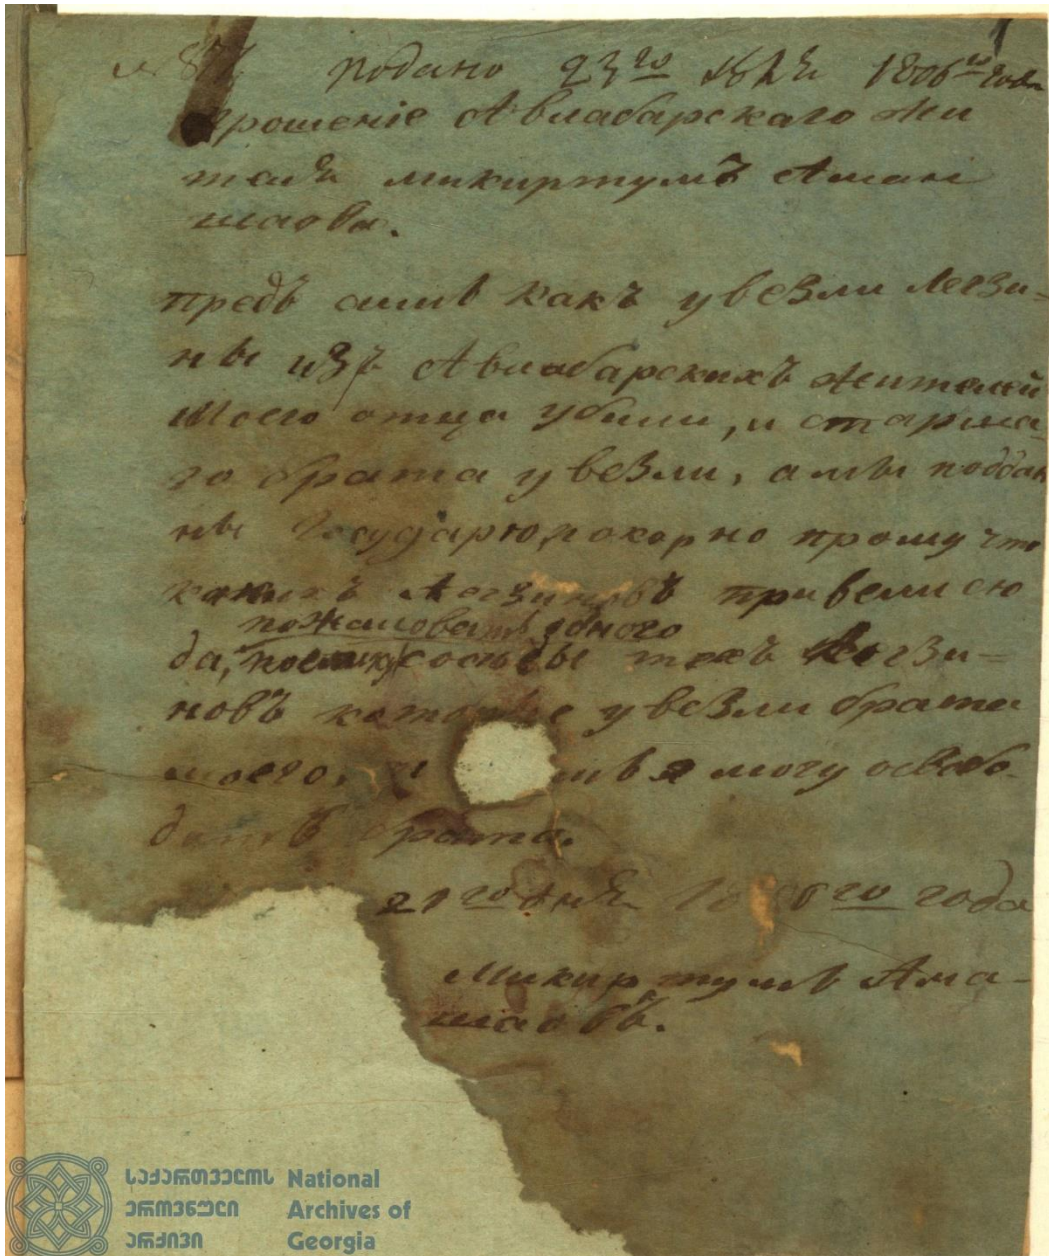 подано 23го 1806го года
прошеніе Авлабарскаго жи
теля микиртумъ Аман
шаова.
предъ симъ какъ увезли лезги=
ны изъ Авлабарскихъ жителей
Моего отца убили, и старша-
го брата увезли, а мы поддан
ны Государю, покорно прошу что
лезгиновъ привели сю
пожаловать одного
да, техъ лезги=
новъ которые увезли брата
моего, я могу освобо-
дить брата.
21го 1806го года
Микиртумъ Ама-
шаовъ.
საქართველოს National
ეროვნული Archives of
არქივი Georgia